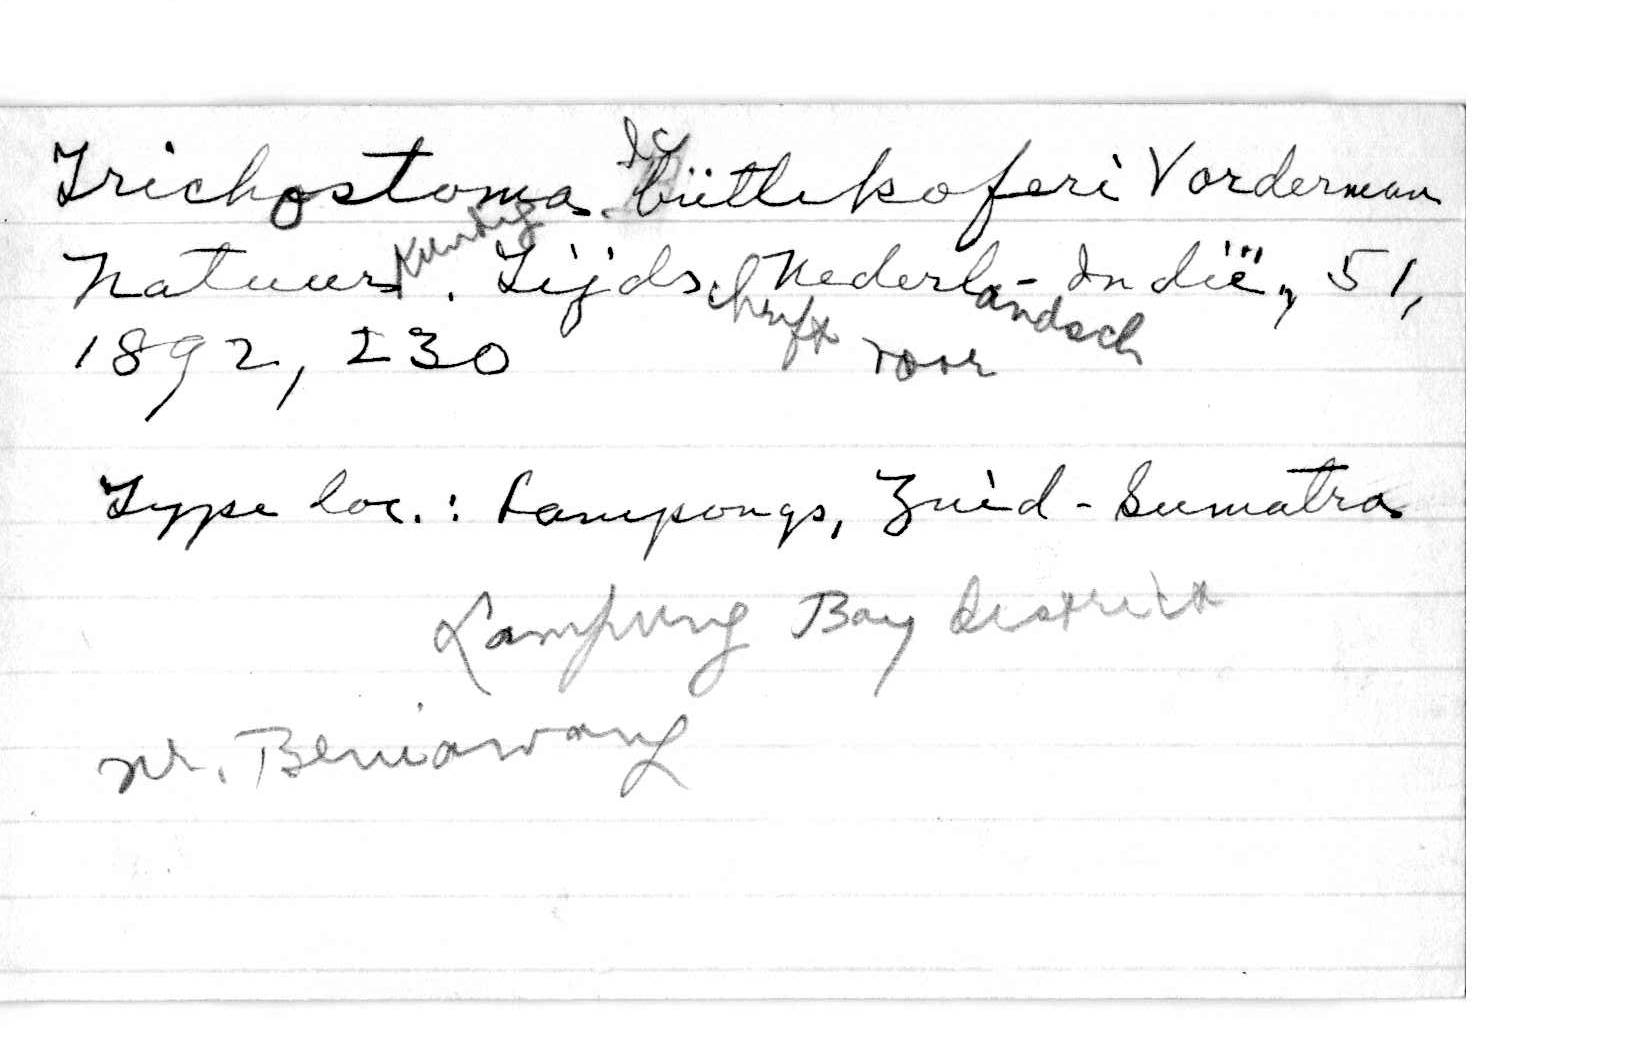 Trichostoma büttikoferi Vorderman
lc
Natuurkundig. Tijdschrift Nederlandsch-Indië, 51,
voor
1892, 230
Type loc.: Lampongs, Zuid-Sumatra
Lampung Bay District
nr. Beniawang